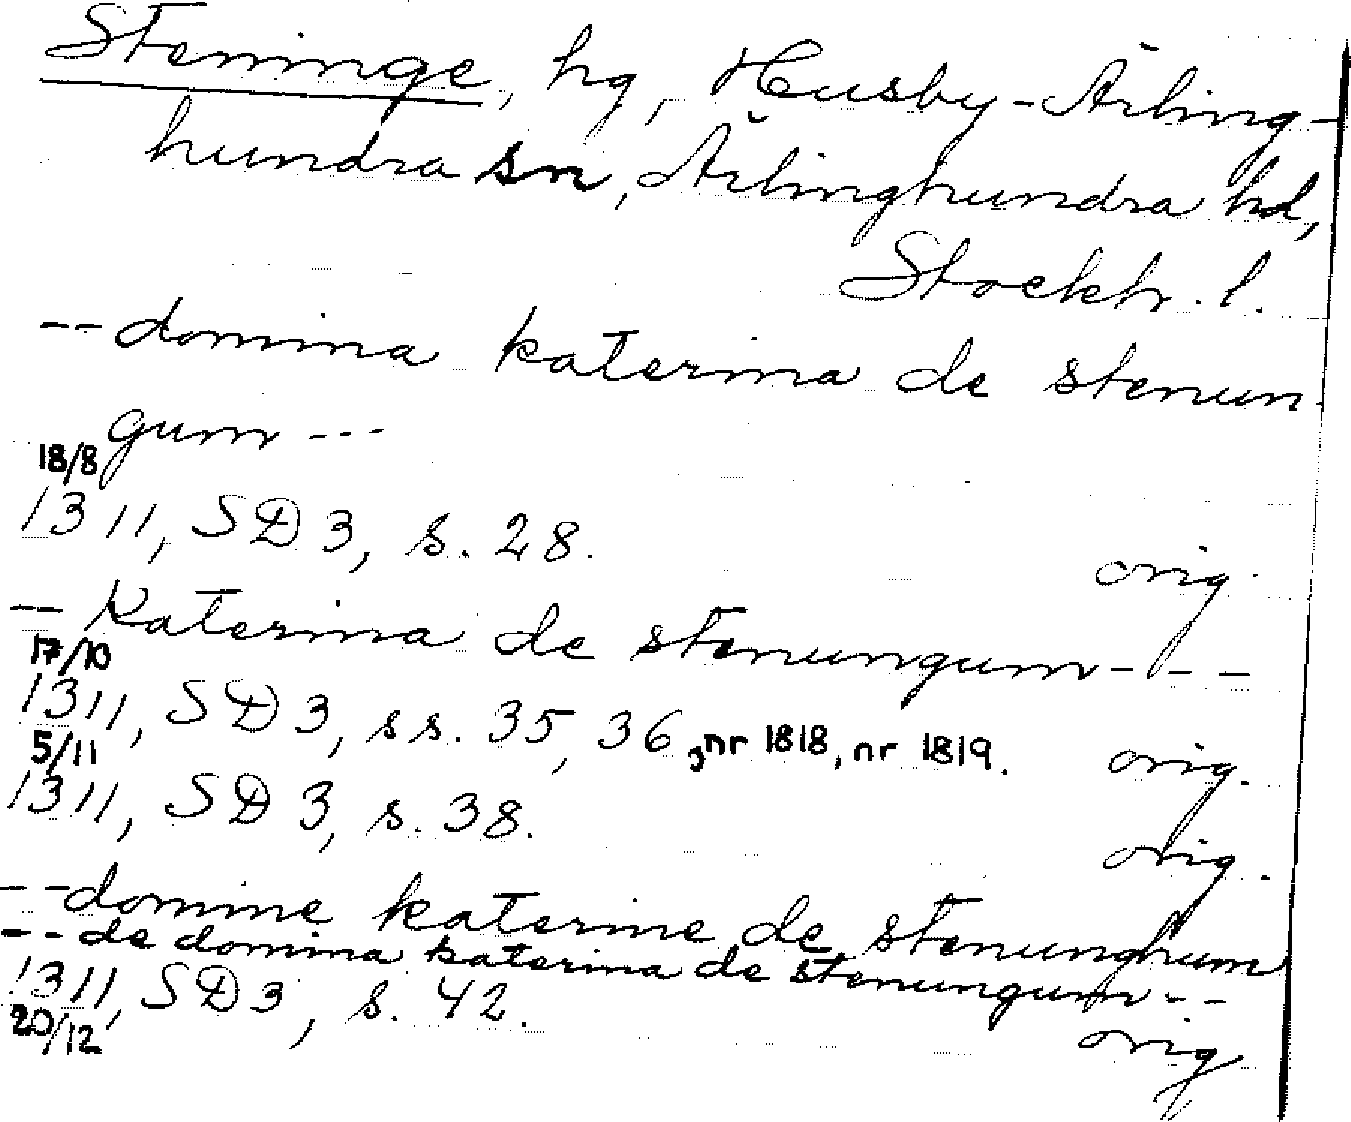 Steninge, hg, Husby-Ärling-
hundra sn, Ärlinghundra hd,
Stockh. l.
-- domina katerina de stenun-
gum ---
18/8
1311, SD 3, s. 28. orig.
-- Katerina de stenungum ---
17/10
1311, SD 3, ss. 35, 36, nr 1818, nr 1819. orig.
5/11
1311, SD 3, s. 38. orig.
-- domine katerine de stenunghum
-- de domina katerina de stenungum --
1311, SD 3, s. 42. orig
20/12